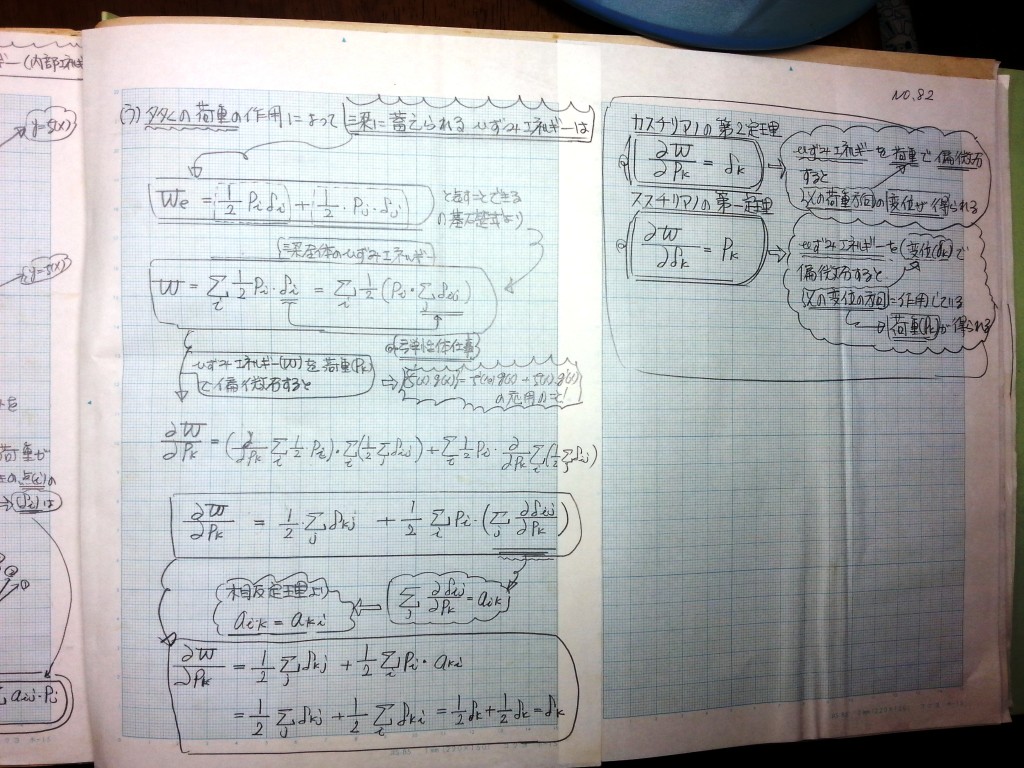 ギー(内部エネルギ
y=f(x)
y=f(x)
荷重が
(δi)は
aij・Pj
NO.82
(ヨ) タタくの荷重の作用によって 梁に蓄えられるひずみエネルギーは
We = 1/2 Pi δi + 1/2・Pj・δj
と表すことできる
の基本式より
梁全体のひずみエネルギー
W = Σi 1/2 Pi・δi = Σi 1/2 (Pi・Σj δij)
弾性体仕事
ひずみエネルギー(W)を荷重(Pk)
で偏微分すると
⇒ {f(x)・g(x)}' = f'(x)・g(x) + f(x)・g'(x)
の応用のこと!
∂W/∂Pk = (∂/∂Pk Σi 1/2 Pi)・Σi(1/2 Σj δij) + Σi 1/2 Pi・∂/∂Pk Σi(1/2 Σj δij)
∂W/∂Pk = 1/2・Σj δkj + 1/2 Σi Pi・(Σj ∂δij/∂Pk)
相反定理より
aik = aki
⇐ Σj ∂δij/∂Pk = aik
∂W/∂Pk = 1/2 Σj δkj + 1/2 Σi Pi・aki
= 1/2 Σj δkj + 1/2 Σi δki = 1/2 δk + 1/2 δk = δk
カスチリアノの第2定理
∂W/∂Pk = δk
ひずみエネルギーを荷重で偏微分
すると
その荷重方向の変位が得られる
カスチリアノの第一定理
∂W/∂δk = Pk
ひずみエネルギーを(変位(δk)で
偏微分すると
その変位の方向に作用している
荷重(Pk)が得られる